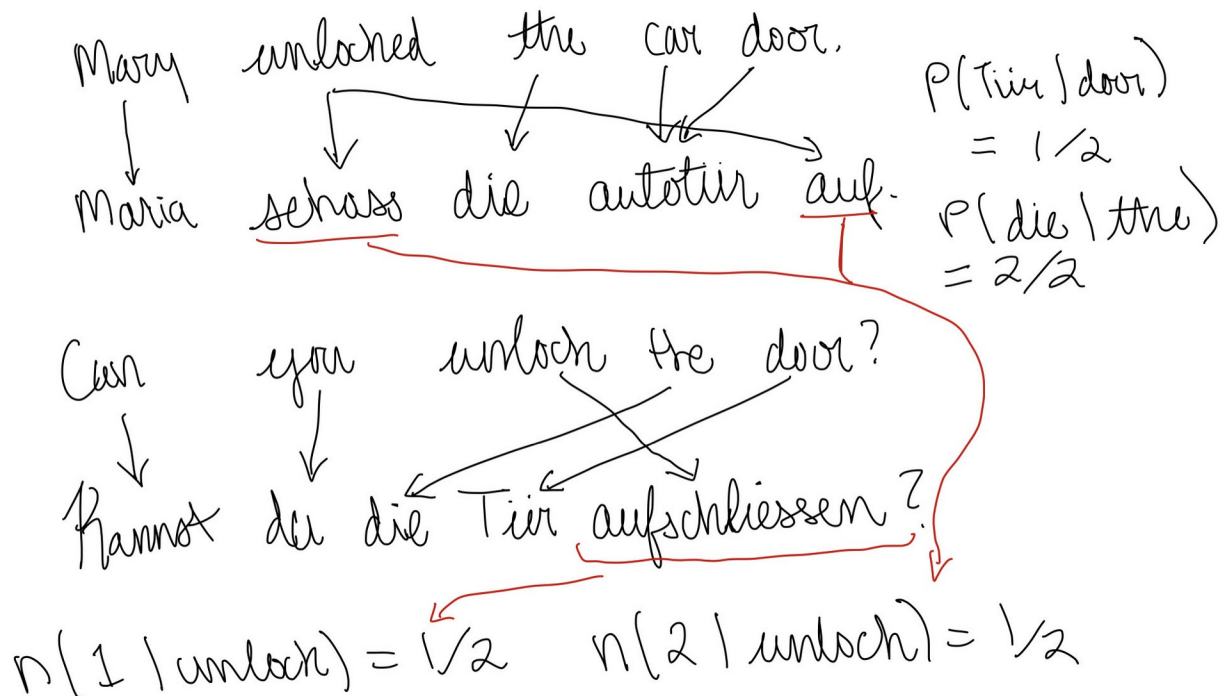 Mary unlocked the car door.
P(Tür | door)
= 1/2
Maria schoss die autotür auf.
P(die | the)
= 2/2
Can you unlock the door?
Kannst du die Tür aufschliessen?
n(1 | unlock) = 1/2 n(2 | unlock) = 1/2